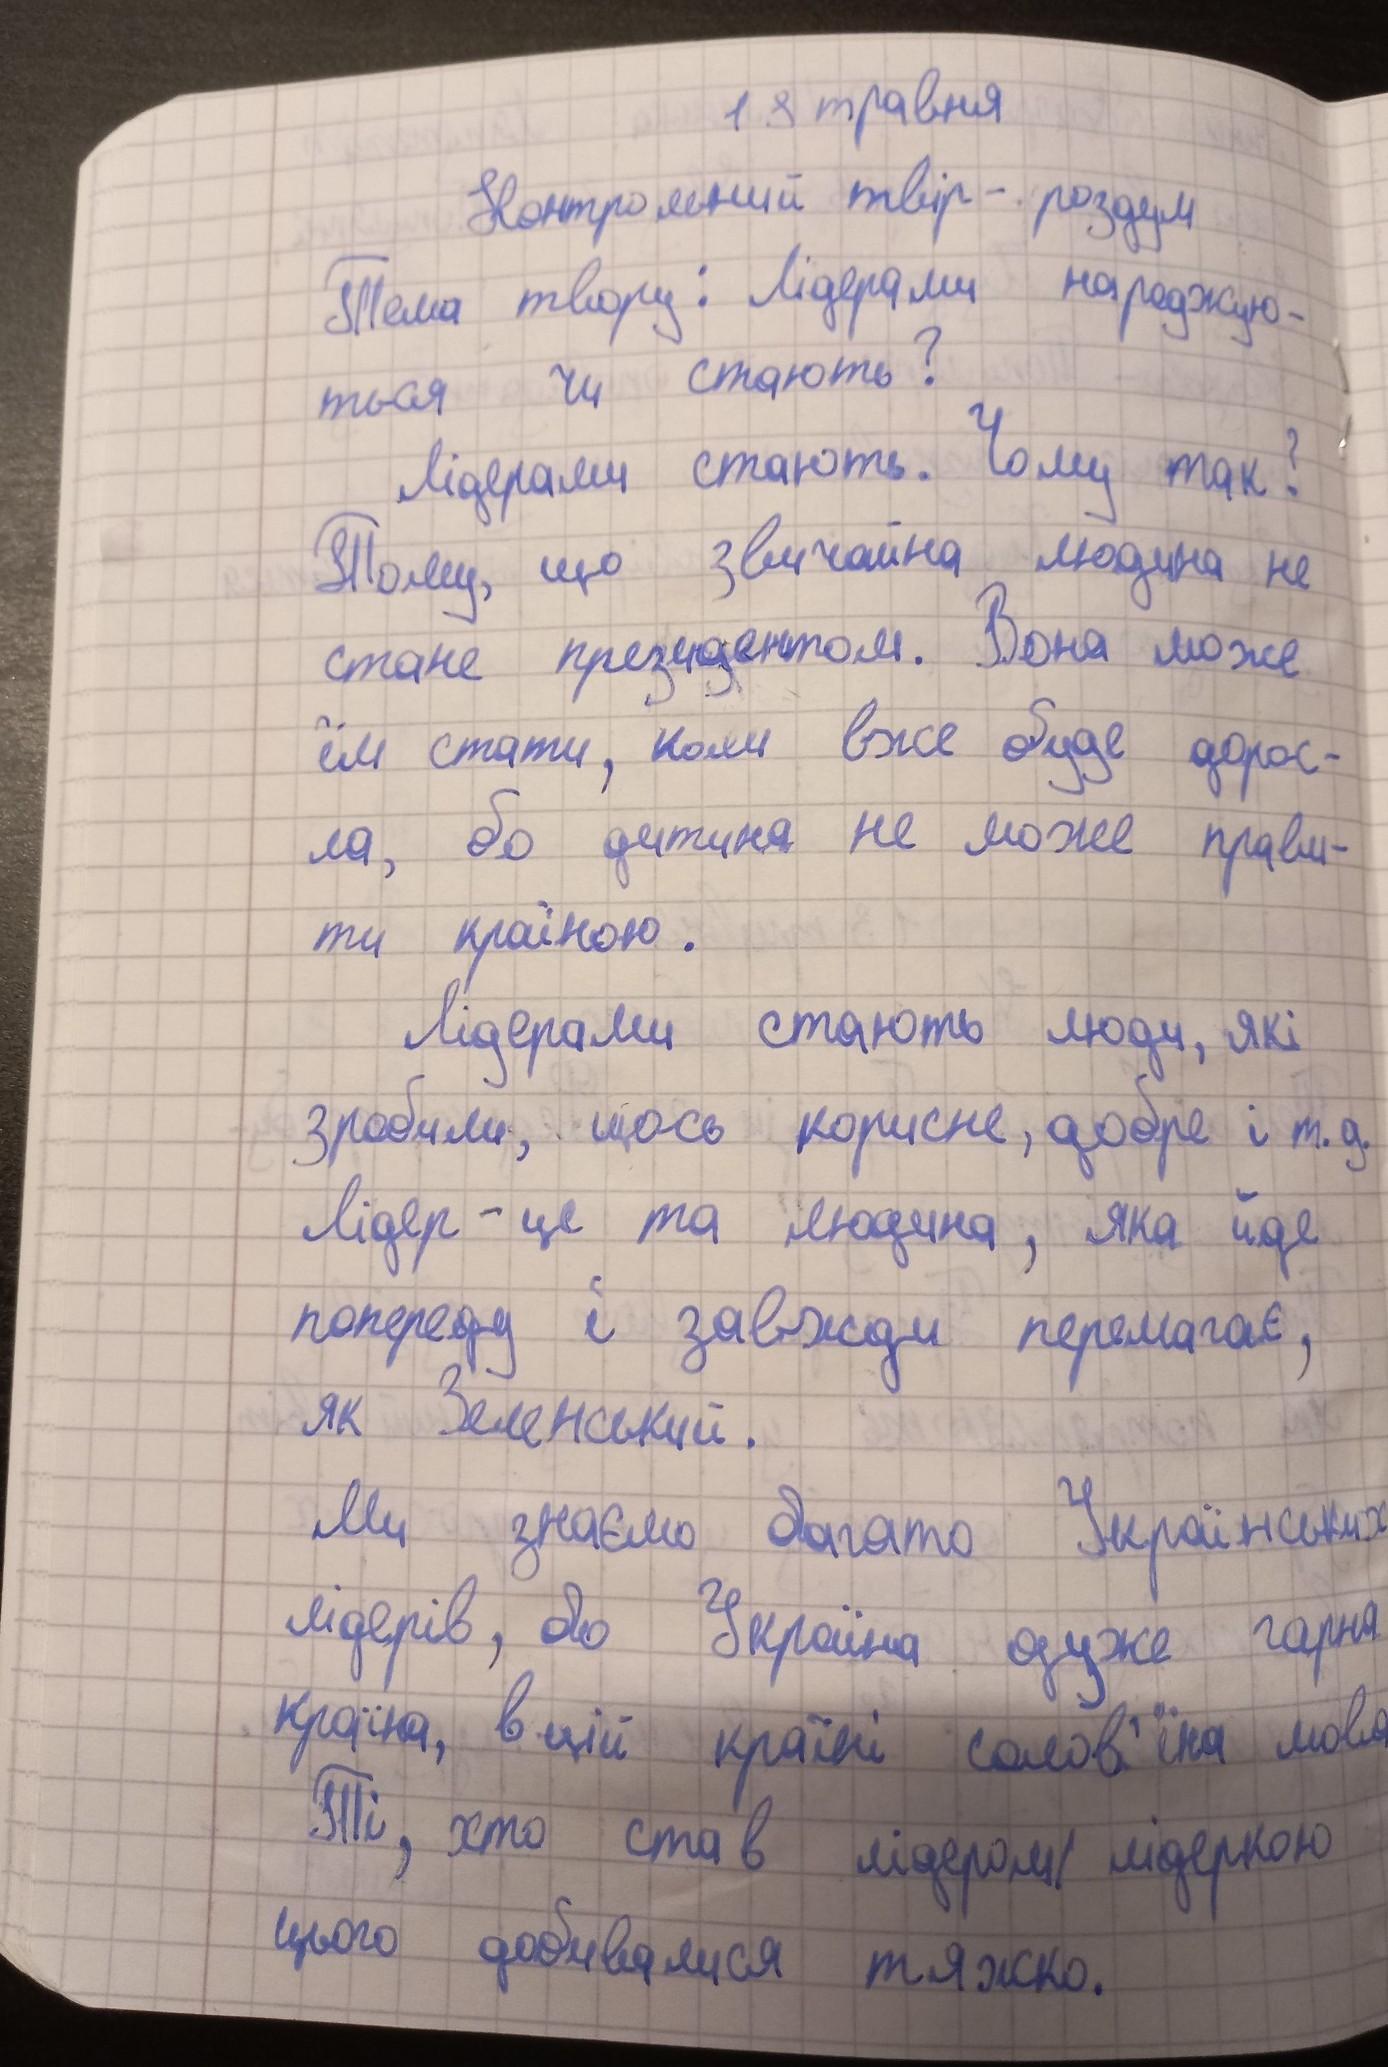 18 травня
Контрольний твір - роздум
Тема твору: Лідерами народжую-
ться чи стають?
Лідерами стають. Чому так?
Тому, що звичайна людина не
стане президентом. Вона може
їм стати, коли вже буде дорос-
ла, бо дитина не може прави-
ти країною.
Лідерами стають люди, які
зробили, щось корисне, добре і т.д.
Лідер - це та людина, яка йде
попереду і завжди перемагає,
як Зеленський.
Ми знаємо багато Українських
лідерів, бо Україна дуже гарна
країна, в цій країні солов'їна мова
Ті, хто став лідером/ лідеркою
цього добивалися тяжко.